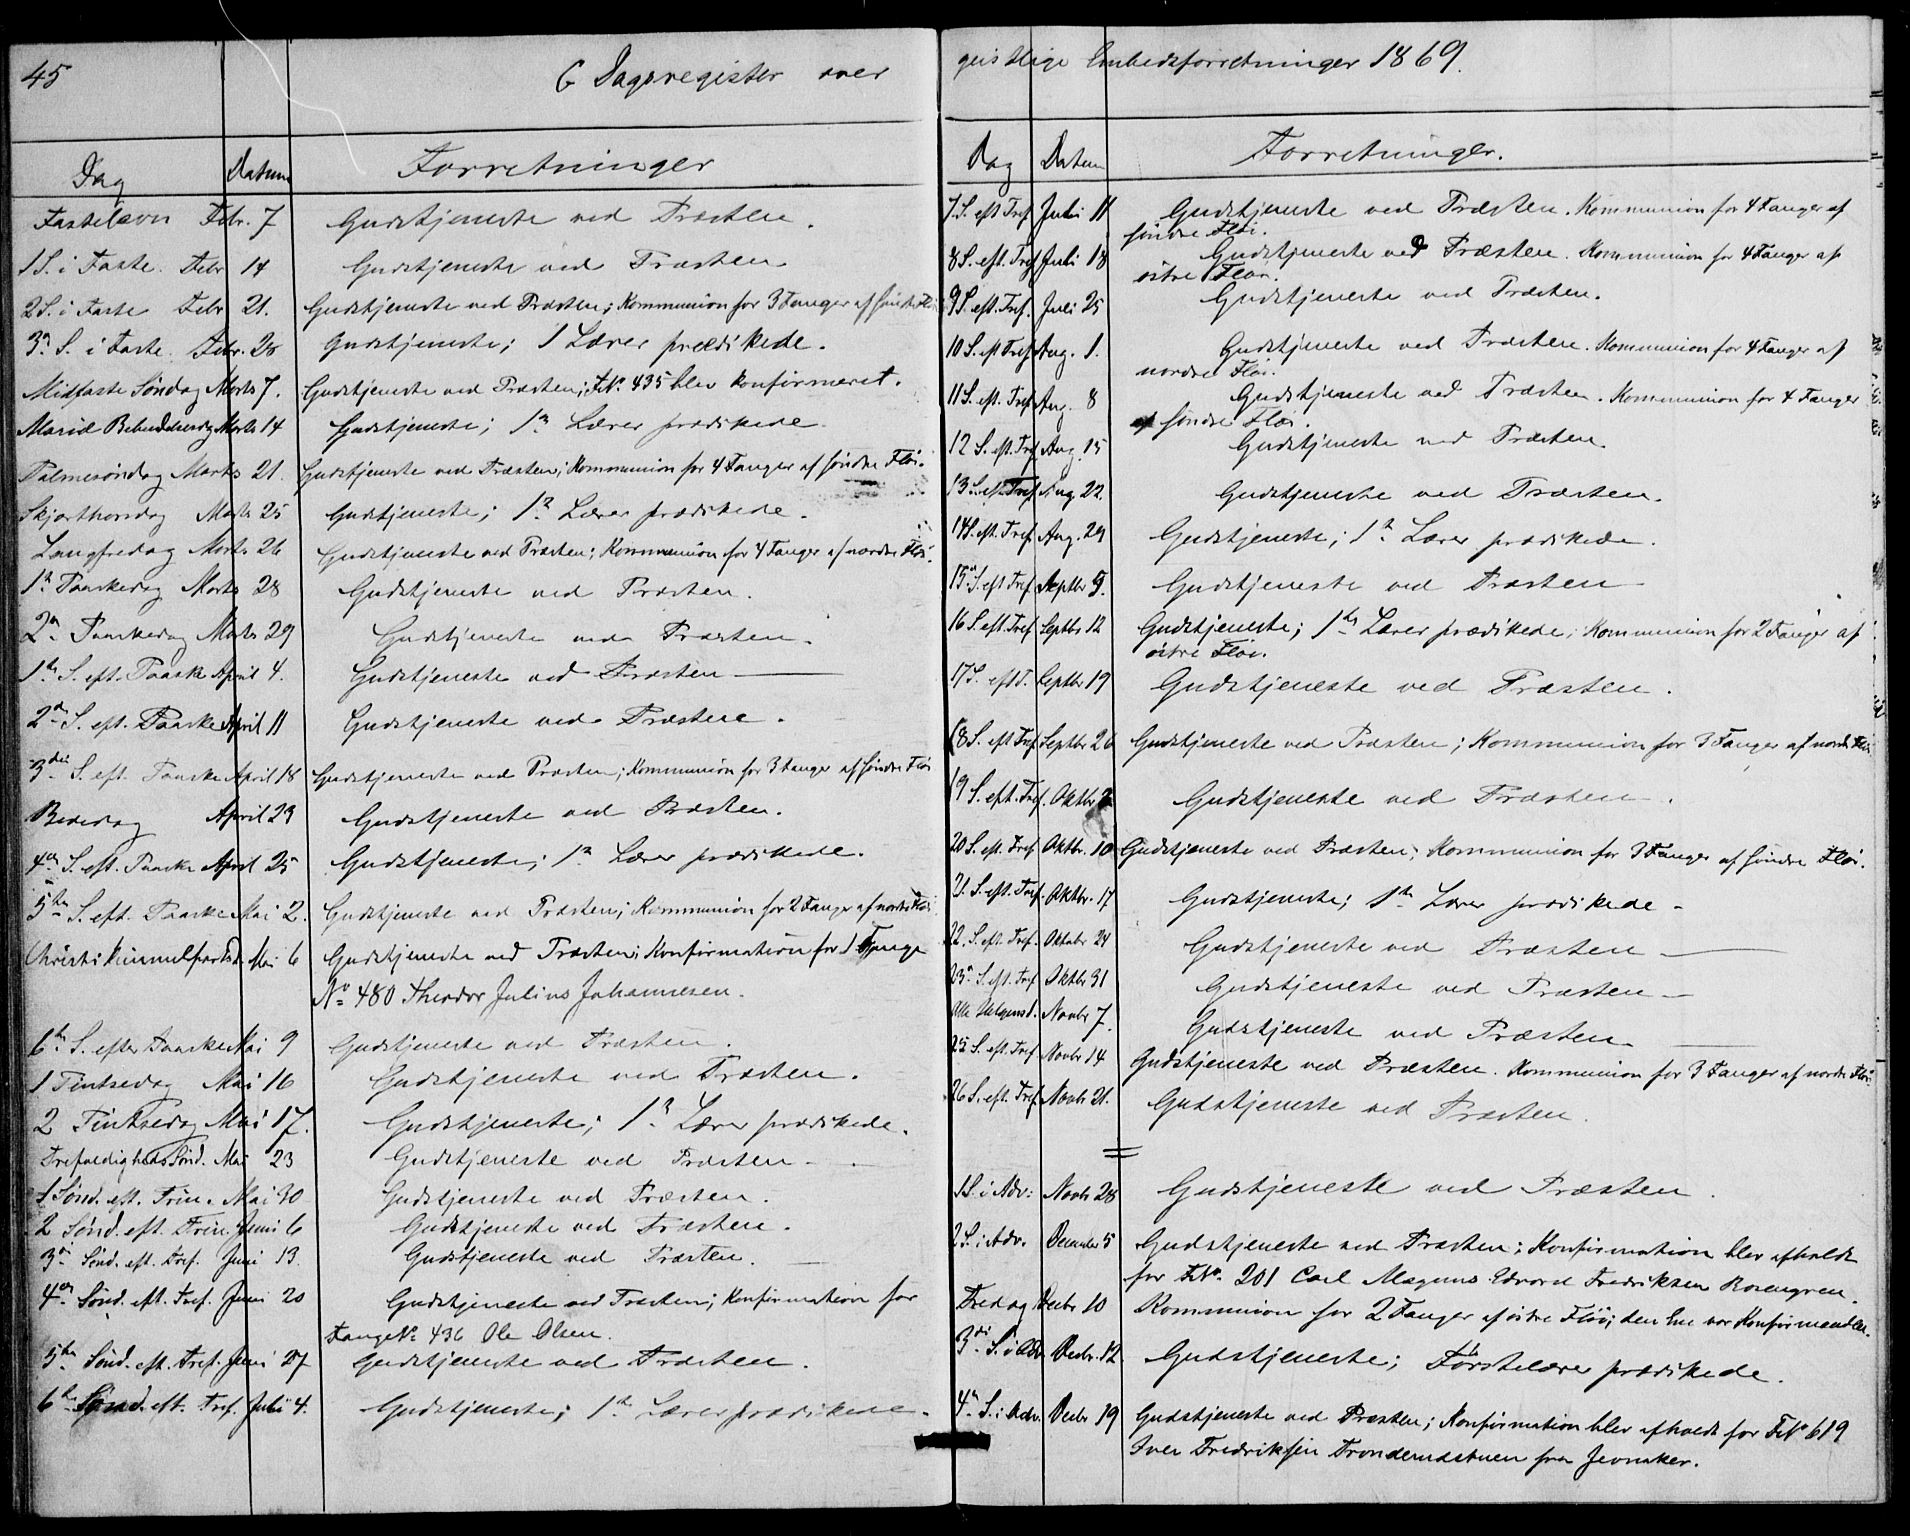 45
G Dagsregister over
Dag Datum Forretninger
Fastelavn Febr. 7 Gudstjeneste ved Præsten.
1 S. i Faste. Febr 14 Gudstjeneste ved Præsten
2 S. i Faste Febr 21. Gudstjeneste ved Præsten; Kommunion for 3 Fanger af søndre Fløi
3die S. i Faste. Febr. 28 Gudstjeneste; 1 Lærer prædikede.
Midfaste Søndag Marts 7. Gudstjeneste ved Præsten; FNo. 435 blev konfirmeret.
Mariæ Bebudelsesdag Marts 14 Gudstjeneste; 1ste Lærer prædikede
Palmesøndag Marts 21. Gudstjeneste ved Præsten; Kommunion for 4 Fanger af søndre Fløi.
Skjærthorsdag Marts 25 Gudstjeneste; 1ste Lærer prædikede.
Langfredag Marts 26 Gudstjeneste ved Præsten; Kommunion for 4 Fanger af nordre Fløi.
1ste Paaskedag Marts 28 Gudstjeneste ved Præsten.
2den Paaskedag Marts 29 Gudstjeneste ved Præsten.
1ste S. eft. Paaske April 4. Gudstjeneste ved Præsten —
2den S. eft. Paaske April 11 Gudstjeneste ved Præsten.
3die S. eft. Paaske April 18 Gudstjeneste ved Præsten; Kommunion for 3 Fanger af søndre Fløi
Bededag April 23 Gudstjeneste ved Præsten.
4de S. eft. Paaske April 25 Gudstjeneste; 1ste Lærer prædikede.
5te S. eft. Paaske Mai 2. Gudstjeneste ved Præsten; Kommunion for 2 Fanger af nordre Fløi
Christi Himmelfartsd. Mai 6 Gudstjeneste ved Præsten; Konfirmation for 1 Fange
No 480 Theodor Julius Johannesen.
6te S. efter Paaske Mai 9 Gudstjeneste ved Præsten.
1 Pintsedag Mai 16 Gudstjeneste ved Præsten.
2 Pintsedag Mai 17. Gudstjeneste; 1ste Lærer prædikede.
Trefoldigheds Sønd. Mai 23 Gudstjeneste ved Præsten —
1 Sønd. eft. Trin. Mai 30 Gudstjeneste ved Præsten.
2 Sønd. eft. Trin. Juni 6 Gudstjeneste ved Præsten.
3die Sønd. eft. Tref. Juni 13. Gudstjeneste ved Præsten.
4de Sønd. eft. Tref. Juni 20 Gudstjeneste ved Præsten; Konfirmation for
Fange No 436 Ole Olsen.
5te Sønd. eft. Tref. Juni 27 Gudstjeneste ved Præsten.
6te Sønd. eft. Tref. Juli 4. Gudstjeneste; 1ste Lærer prædikede.
geistlige Embedsforretninger 1869.
Dag Datum Forretninger.
7. S. eft Tref. Juli 11 Gudstjeneste ved Præsten. Kommunion for 4 Fanger af
søndre Fløi.
8 S. eft. Tref Juli 18 Gudstjeneste ved Præsten. Kommunion for 4 Fanger af
østre Fløi.
9 S. eft. Tref. Juli 25 Gudstjeneste ved Præsten.
10 S. eft Tref Aug. 1. Gudstjeneste ved Præsten. Kommunion for 4 Fanger af
nordre Fløi.
11 S. eft. Tref. Aug. 8 Gudstjeneste ved Præsten. Kommunion for 4 Fanger
af søndre Fløi.
12 S. eft. Tref Aug. 15 Gudstjeneste ved Præsten.
13 S. eft. Tref Aug. 22. Gudstjeneste ved Præsten.
14 S. eft. Tref. Aug. 29 Gudstjeneste; 1ste Lærer prædikede.
15 S. eft Tref Septbr 5. Gudstjeneste ved Præsten
16 S. eft. Tref Septbr 12 Gudstjeneste; 1ste Lærer prædikede; Kommunion for 2 Fanger af
østre Fløi.
17 S. eft T. Septbr 19 Gudstjeneste ved Præsten.
18 S. eft Tref Septbr 26 Gudstjeneste ved Præsten; Kommunion for 3 Fanger af nordre Fløi
19 S. eft. Tref. Oktbr Gudstjeneste ved Præsten.
20 S. eft. Tref Oktbr. 10 Gudstjeneste ved Præsten; Kommunion for 3 Fanger af søndre Fløi.
21. S. eft. Tref. Oktbr. 17 Gudstjeneste; 1ste Lærer prædikede —
22. S. eft. Tref. Oktobr 24 Gudstjeneste ved Præsten —
23. S. eft. Tref Oktbr 31 Gudstjeneste ved Præsten —
Alle Helgensd. Novbr 7. Gudstjeneste ved Præsten.
25 S. eft. Tref Novbr 14 Gudstjeneste ved Præsten. Kommunion for 3 Fanger af nordre Fløi
26 S. eft. Tref. Novbr 21. Gudstjeneste ved Præsten.
1 S. i Adv: Novbr 28 Gudstjeneste ved Præsten.
2 S. i Adv. December 5 Gudstjeneste ved Præsten; Konfirmation blev afholdt
for FNo. 201 Carl Magnus Edvard Fredriksen Rosengren.
Fredag Decbr 10 Kommunion for 2 Fanger af østre Fløi; den Ene var Konfirmanden.
3die S. i Adv. Decbr. 12. Gudstjeneste; Førstelærer prædikede.
4de S. i Adv. Decbr 19 Gudstjeneste ved Præsten; Konfirmation blev afholdt for FNo 619
Iver Fredriksen Tronderudstuen fra Jevnaker.